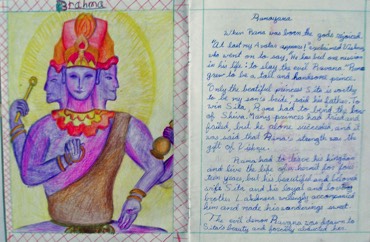 Brahma
Ramayana
When Rama was born the gods rejoiced.
"At last my Avatar appears!" exclaimed Vishnu,
who went on to say, "He has but one mission
in his life: to slay the evil Ravana." Rama
grew to be a tall and handsome prince.
"Only the beautiful princess Sita is worthy
to be my son's bride," said his father. To
win Sita, Rama had to bend the bow
of Shiva. Many princes had tried and
failed, but he alone succeeded, and it
was said that Rama's strength was the
gift of Vishnu.
Rama had to leave his kingdom
and live the life of a hermit for four
teen years, but his beautiful and beloved
wife Sita and his loyal and loving
brother Lakshmana willingly accompanied
him and made his wanderings sweet.
The evil demon Ravana was drawn to
Sita's beauty and forcibly abducted her.